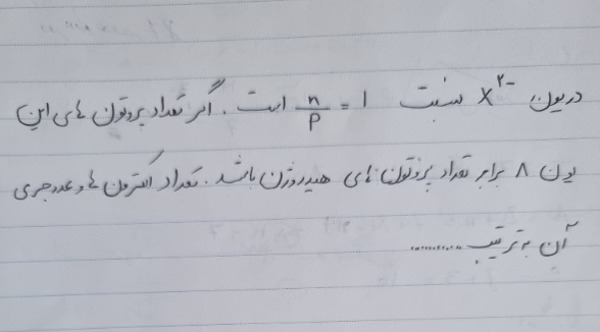 در یون X²⁻ نسبت n/p = ۱ است . اگر تعداد پروتون های این
یون ۸ برابر تعداد پروتون های هیدروژن باشد . تعداد الکترون ها و عدد جرمی
آن به ترتیب ...........